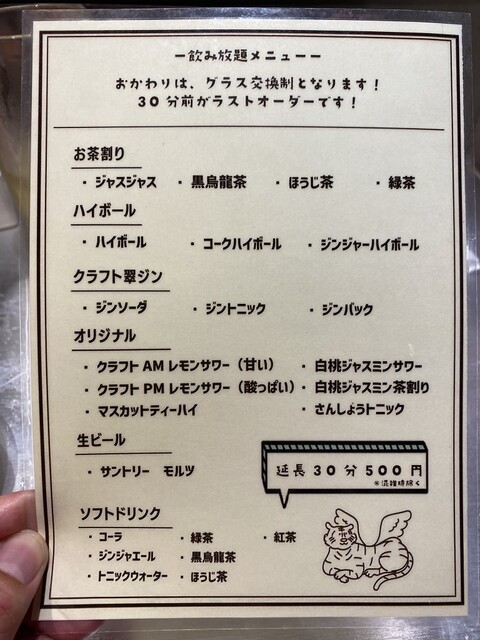 ー飲み放題メニューー
おかわりは、グラス交換制となります！
30分前がラストオーダーです！
お茶割り
・ジャスジャス ・黒烏龍茶 ・ほうじ茶 ・緑茶
ハイボール
・ハイボール ・コークハイボール ・ジンジャーハイボール
クラフト翠ジン
・ジンソーダ ・ジントニック ・ジンバック
オリジナル
・クラフトAMレモンサワー（甘い） ・白桃ジャスミンサワー
・クラフトPMレモンサワー（酸っぱい） ・白桃ジャスミン茶割り
・マスカットティーハイ ・さんしょうトニック
生ビール
・サントリー モルツ
延長30分500円
※混雑時除く
ソフトドリンク
・コーラ ・緑茶 ・紅茶
・ジンジャエール ・黒烏龍茶
・トニックウォーター ・ほうじ茶